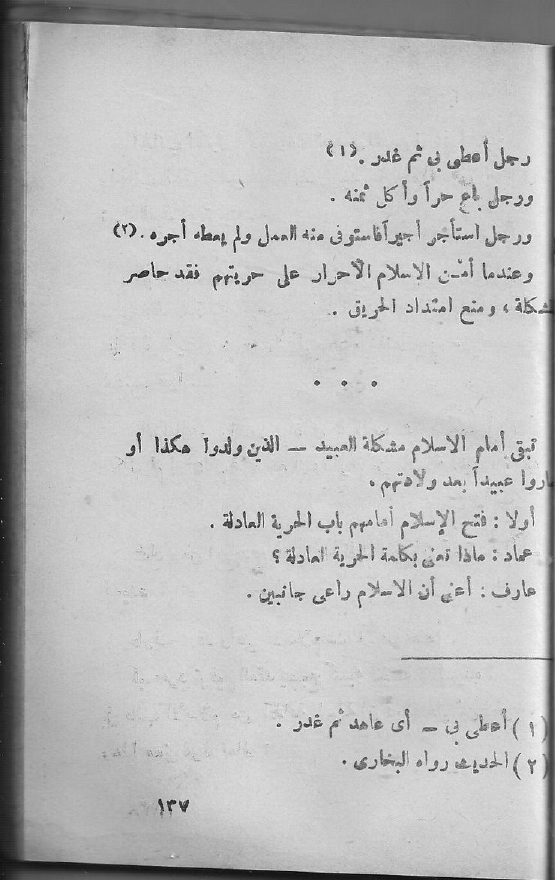 رجل أعطى بى ثم غدر .(١)
ورجل باع حراً وأكل ثمنه .
ورجل استأجر أجيراً فاستوفى منه العمل ولم يعطه أجره .(٢)
وعندما أمّن الاسلام الأحرار على حريتهم فقد حاصر
شكلة ، ومنع امتداد الحريق .
. . .
تبقى أمام الاسلام مشكلة العبيد — الذين ولدوا هكذا أو
اروا عبيداً بعد ولادتهم .
أولا : فتح الإسلام أمامهم باب الحرية العادلة .
عماد : ماذا تعنى بكلمة الحرية العادلة ؟
عارف : أعنى أن الاسلام راعى جانبين .
(١) أعطى بى — أى عاهد ثم غدر .
(٢) الحديث رواه البخارى .
١٣٧